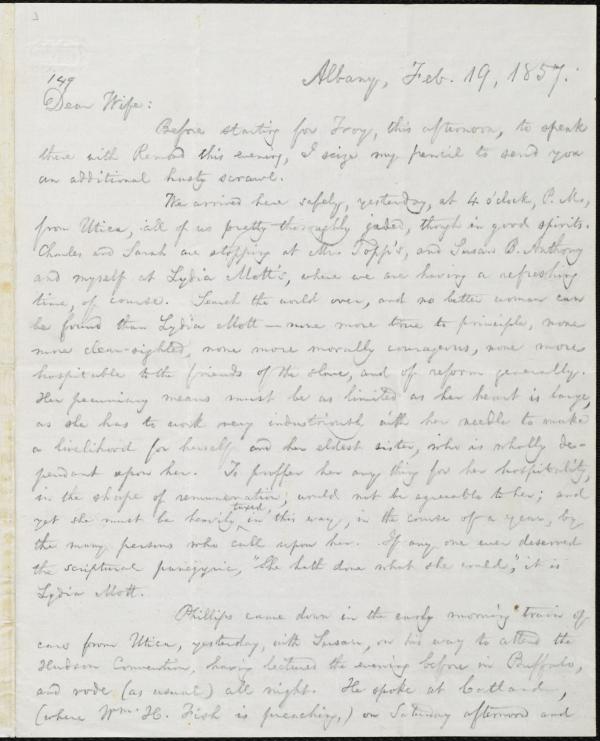 149
Albany, Feb. 19, 1857.
Dear Wife:
Before starting for Troy, this afternoon, to speak
there with Remond this evening, I seize my pencil to send you
an additional hasty scrawl.
We arrived here safely, yesterday, at 4 o'clock, P.M.,
from Utica, all of us pretty thoroughly jaded, though in good spirits.
Charles and Sarah are stopping at Mrs. Topp's, and Susan B. Anthony
and myself at Lydia Mott's, where we are having a refreshing
time, of course. Search the world over, and no better woman can
be found than Lydia Mott — none more true to principle, none
more clear-sighted, none more morally courageous, none more
hospitable to the friends of the slave, and of reform generally.
Her pecuniary means must be as limited as her heart is large,
as she has to work very industriously with her needle to make
a livelihood for herself and her eldest sister, who is wholly de-
pendant upon her. To proffer her any thing for her hospitality,
in the shape of remuneration, would not be agreeable to her; and
yet she must be heavily taxed, in this way, in the course of a year, by
the many persons who call upon her. If any one ever deserved
the scriptural panegyric, "She hath done what she could," it is
Lydia Mott.
Phillips came down in the early morning train of
cars from Utica, yesterday, with Susan, on his way to attend the
Hudson Convention, having lectured the evening before in Buffalo,
and rode (as usual) all night. He spoke at Cortland,
(where Wm. H. Fish is preaching,) on Saturday afternoon and